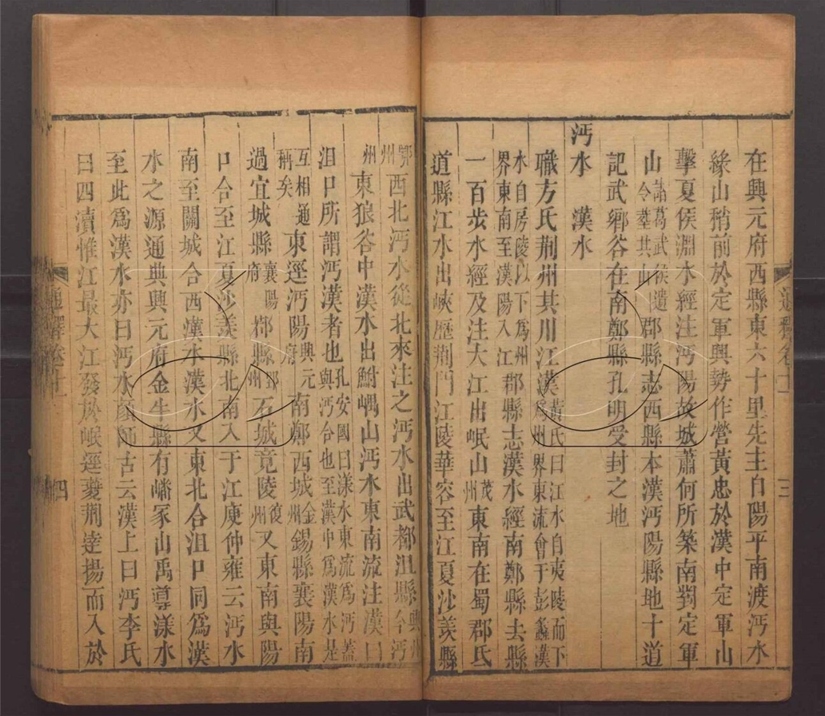 在興元府西縣東六十里先主自陽平南渡沔水
緣山稍前於定軍興勢作營黃忠於漢中定軍山
擊夏侯淵水經注沔陽故城蕭何所築南對定軍
山諸葛武侯遺令墓其山郡縣志西縣本漢沔陽縣地十道
記武鄉谷在南鄭縣孔明受封之地
沔水 漢水
職方氏荊州其川江漢黃氏曰江水自夷陵而下為州界東流會于彭蠡漢
水自房陵以下為州界東南至漢陽入江郡縣志漢水經南鄭縣去縣
一百步水經及注大江出岷山茂州東南在蜀郡氐
道縣江水出峽歷荊門江陵華容至江夏沙羨縣
鄂州西北沔水從北來注之沔水出武都沮縣今沔
州東狼谷中漢水出鮒嵎山沔水東南流注漢曰
沮口所謂沔漢者也孔安國曰漾水東流為沔蓋與沔合也至漢中為漢水是
互相通稱矣東逕沔陽興元府南鄭西城金州錫縣襄陽南
過宜城縣襄陽府鄀縣郢州石城竟陵復州又東南與陽
口合至江夏沙羨縣北南入于江庾仲雍云沔水
南至關城合西漢水漢水又東北合沮口同為漢
水之源通典興元府金牛縣有嶓冢山禹導漾水
至此為漢水亦曰沔水顏師古云漢上曰沔李氏
曰四瀆惟江最大江發於岷逕夔荊達揚而入於
通釋卷十一
三
四